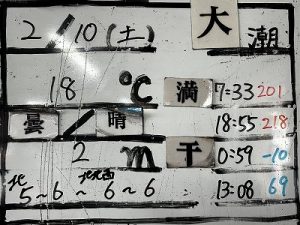 2/10(土) 大潮
18℃ 満 7:33 201
曇/晴 18:55 218
2m 干 0:59 -10
北 北西
5~6~6~6 13:08 69